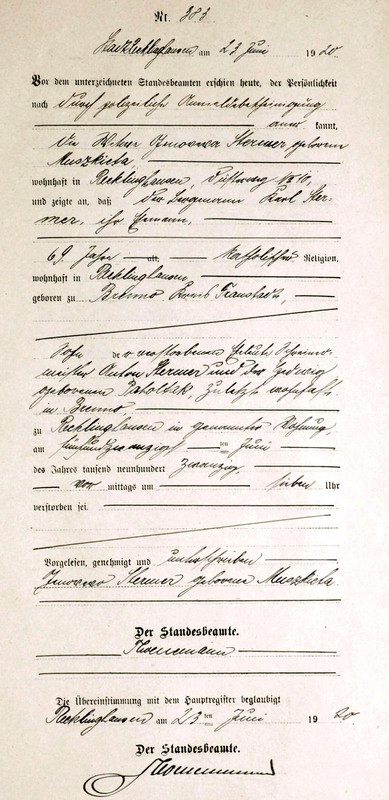 Nr. 383
Stadt Recklinghausen am 23 Juni 1920
Vor dem unterzeichneten Standesbeamten erschien heute, der Persönlichkeit
nach durch polizeiliche Anmeldebescheinigung
anerkannt,
die Witwe Stermer, geborene
Muszkieta
wohnhaft in Recklinghausen,
und zeigte an, daß der Bergmann Karl Ster-
mer, ihr Ehemann,
69 Jahr alt, katholischer Religion,
wohnhaft in Recklinghausen,
geboren zu Brenno Kreis Fraustadt,
Sohn der verstorbenen Eheleute Schreiner-
meister Anton Stermer und der Hedwig
geborenen Ratoltzak, zuletzt wohnhaft
in Brenno,
zu Recklinghausen in genannter Wohnung,
am ten Juni
des Jahres tausend neunhundert zwanzig
vor mittags um sieben Uhr
verstorben sei.
Vorgelesen, genehmigt und unterschrieben
Stermer geborene Muszkieta.
Der Standesbeamte.
Die Übereinstimmung mit dem Hauptregister beglaubigt
Recklinghausen am 23 ten Juni 1920.
Der Standesbeamte.